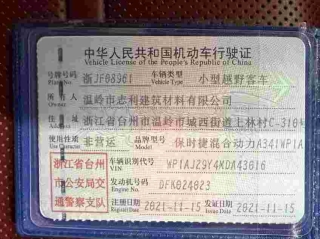 中华人民共和国机动车行驶证
Vehicle License of the People's Republic of China
号牌号码 浙JF08961 车辆类型 Vehicle Type 小型越野客车
所有人 温岭市志利建筑材料有限公司
住址 浙江省台州市温岭市城西街道上林村C-310
使用性质 非营运 品牌型号 Model 保时捷混合动力A341WP1A
浙江省台州市公安局交通警察支队
车辆识别代号 VIN WP1AJZ9Y4MDA43616
发动机号码 DFK024823
注册日期 2021-11-15 发证日期 Issue Date 2021-11-15